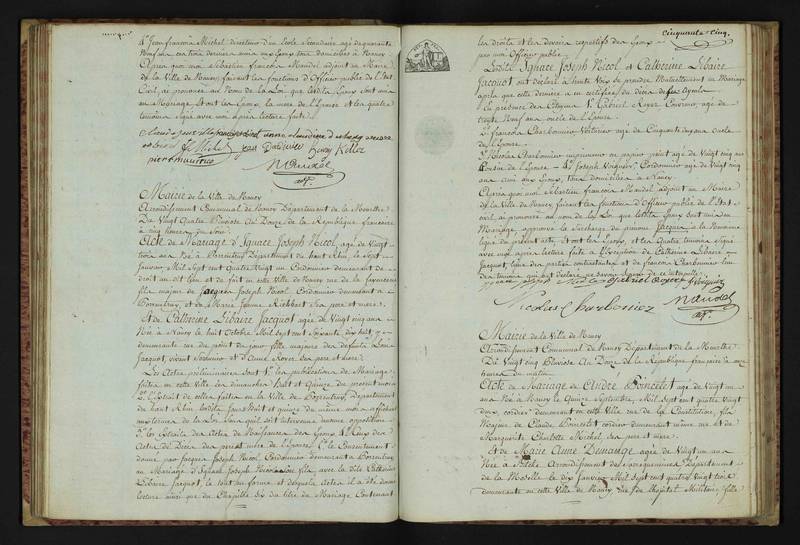 4.º Jean françois Michel directeur d'un Ecole Secondaire agé de quarante
neuf ans
Après quoi moi Sébastien françois Mandel adjoint au Maire
de la Ville de Nancy faisant les fonctions d'Officier public de l'Etat
Civil, ai prononcé au Nom de la Loi que lesdits Epoux sont unis
en Mariage, et ont les Epoux, la mere de l'Epouse et les quatre
témoins signé avec moi après lecture faite.
Mandel
adj.
Mairie de la Ville de Nancy
Arrondissement Communal de Nancy Département de la Meurthe
Du Vingt Quatre Nivose an Douze de la République francaise
à cinq heures du Soir.
Acte de Mariage d'Ignace Joseph Nicol, agé de Vingt
trois ans Né à Porrentruy Département du haut Rhin, le sept
Janvier Mil Sept cent Quatre Vingt un Cordonnier demeurant de
droit au dit lieu et de fait en cette Ville de Nancy rue de la
fils majeur de Jacques Joseph Nicol Cordonnier demeurant à
Porrentruy, et de Marie Jeanne Ses pere et mere.
Et de Catherine Libaire Jacquot agée de Vingt cinq ans
Née à Nancy le huit Octobre Mil Sept cent Soixante dix huit, y
demeurante rue du point du jour fille majeure des défunts Louis
Jacquot, vivant et d'Anne Royer Ses pere et mere.
Les Actes préliminaires sont 1.º les publications de Mariage
faites en cette Ville les dimanches Huit et Quinze du present mois
2.º l'Extrait de celles faites en la Ville de Porrentruy, département
du haut Rhin lesdits Jours Huit et quinze du même mois affichées
aux termes de la Loi Sans qu'il soit intervenu aucune opposition
3.º les Extraits des Actes de Naissances des Epoux 4.º Ceux des
Actes de Décès des pere et mere de l'Epouse 5.º le Consentement
donné par Jacques Joseph Nicol Cordonnier demeurant à Porrentruy
au Mariage d'Ignace Joseph Nicol son fils, avec la dite Catherine
Libaire Jacquot, le tout en forme et desquels actes il a été donné
lecture ainsi que du Chapitre Six du titre du Mariage Contenant
Cinquante-Cinq.
les droits et les devoirs respectifs des Epoux
par moi Officier public.
Lesdits Ignace Joseph Nicol et Catherine Libaire
Jacquot ont déclaré à haute Voix se prendre Mutuellement en Mariage
après que cette derniere a certifié du décès de ses Ayeuls
En présence des Citoyens 1.º Gabriel Royer Couvreur, agé de
trente Neuf ans oncle de l'Epouse
2.º françois Charbonnier Voiturier agé de Cinquante ans oncle
de l'Epouse.
3.º Nicolas Charbonnier imprimeur en papier peint agé de Vingt cinq ans
Cousin de l'Epouse _ 4.º Joseph Cordonnier agé de Vingt
cinq ans aux Epoux, tous domiciliés à Nancy.
Après quoi moi Sébastien françois Mandel, adjoint au Maire
de la Ville de Nancy, faisant les fonctions d'Officier public de l'Etat
civil, ai prononcé au nom de la Loi que lesdits Epoux sont unis en
Mariage, approuvé la Surcharge du prénom Jacques à la
ligne du présent acte, et ont les Epoux, et les quatre témoins signé
avec moi après lecture faite à l'exception de Catherine Libaire
Jacquot, l'une des parties contractantes et de françois Charbonnier l'un
des témoins qui ont déclaré ne savoir signer de ce interpellés.
Nicolas Charbonnier
Mandel
adj.
Mairie de la Ville de Nancy
Arrondissement Communal de Nancy Département de la Meurthe
Du Vingt cinq Nivose an Douze de la République française à onze
heures du matin
Acte de Mariage de André Poincelet agé de Vingt un
ans Né à Nancy le Quinze Septembre, Mil Sept cent quatre Vingt
deux, cordier demeurant en cette Ville rue de la Constitution, fils
Majeur de Claude Poincelet cordier demeurant même rue et de
Marguerite Charlotte Michel ses pere et mere.
Et de Marie Anne Demange agée de Vingt un ans
Née à Bitche Arrondissement de Sarreguemines Département
de la Moselle le dix Janvier Mil Sept cent quatre Vingt trois
demeurante en cette Ville de Nancy rue de l'hopital Militaire, fille